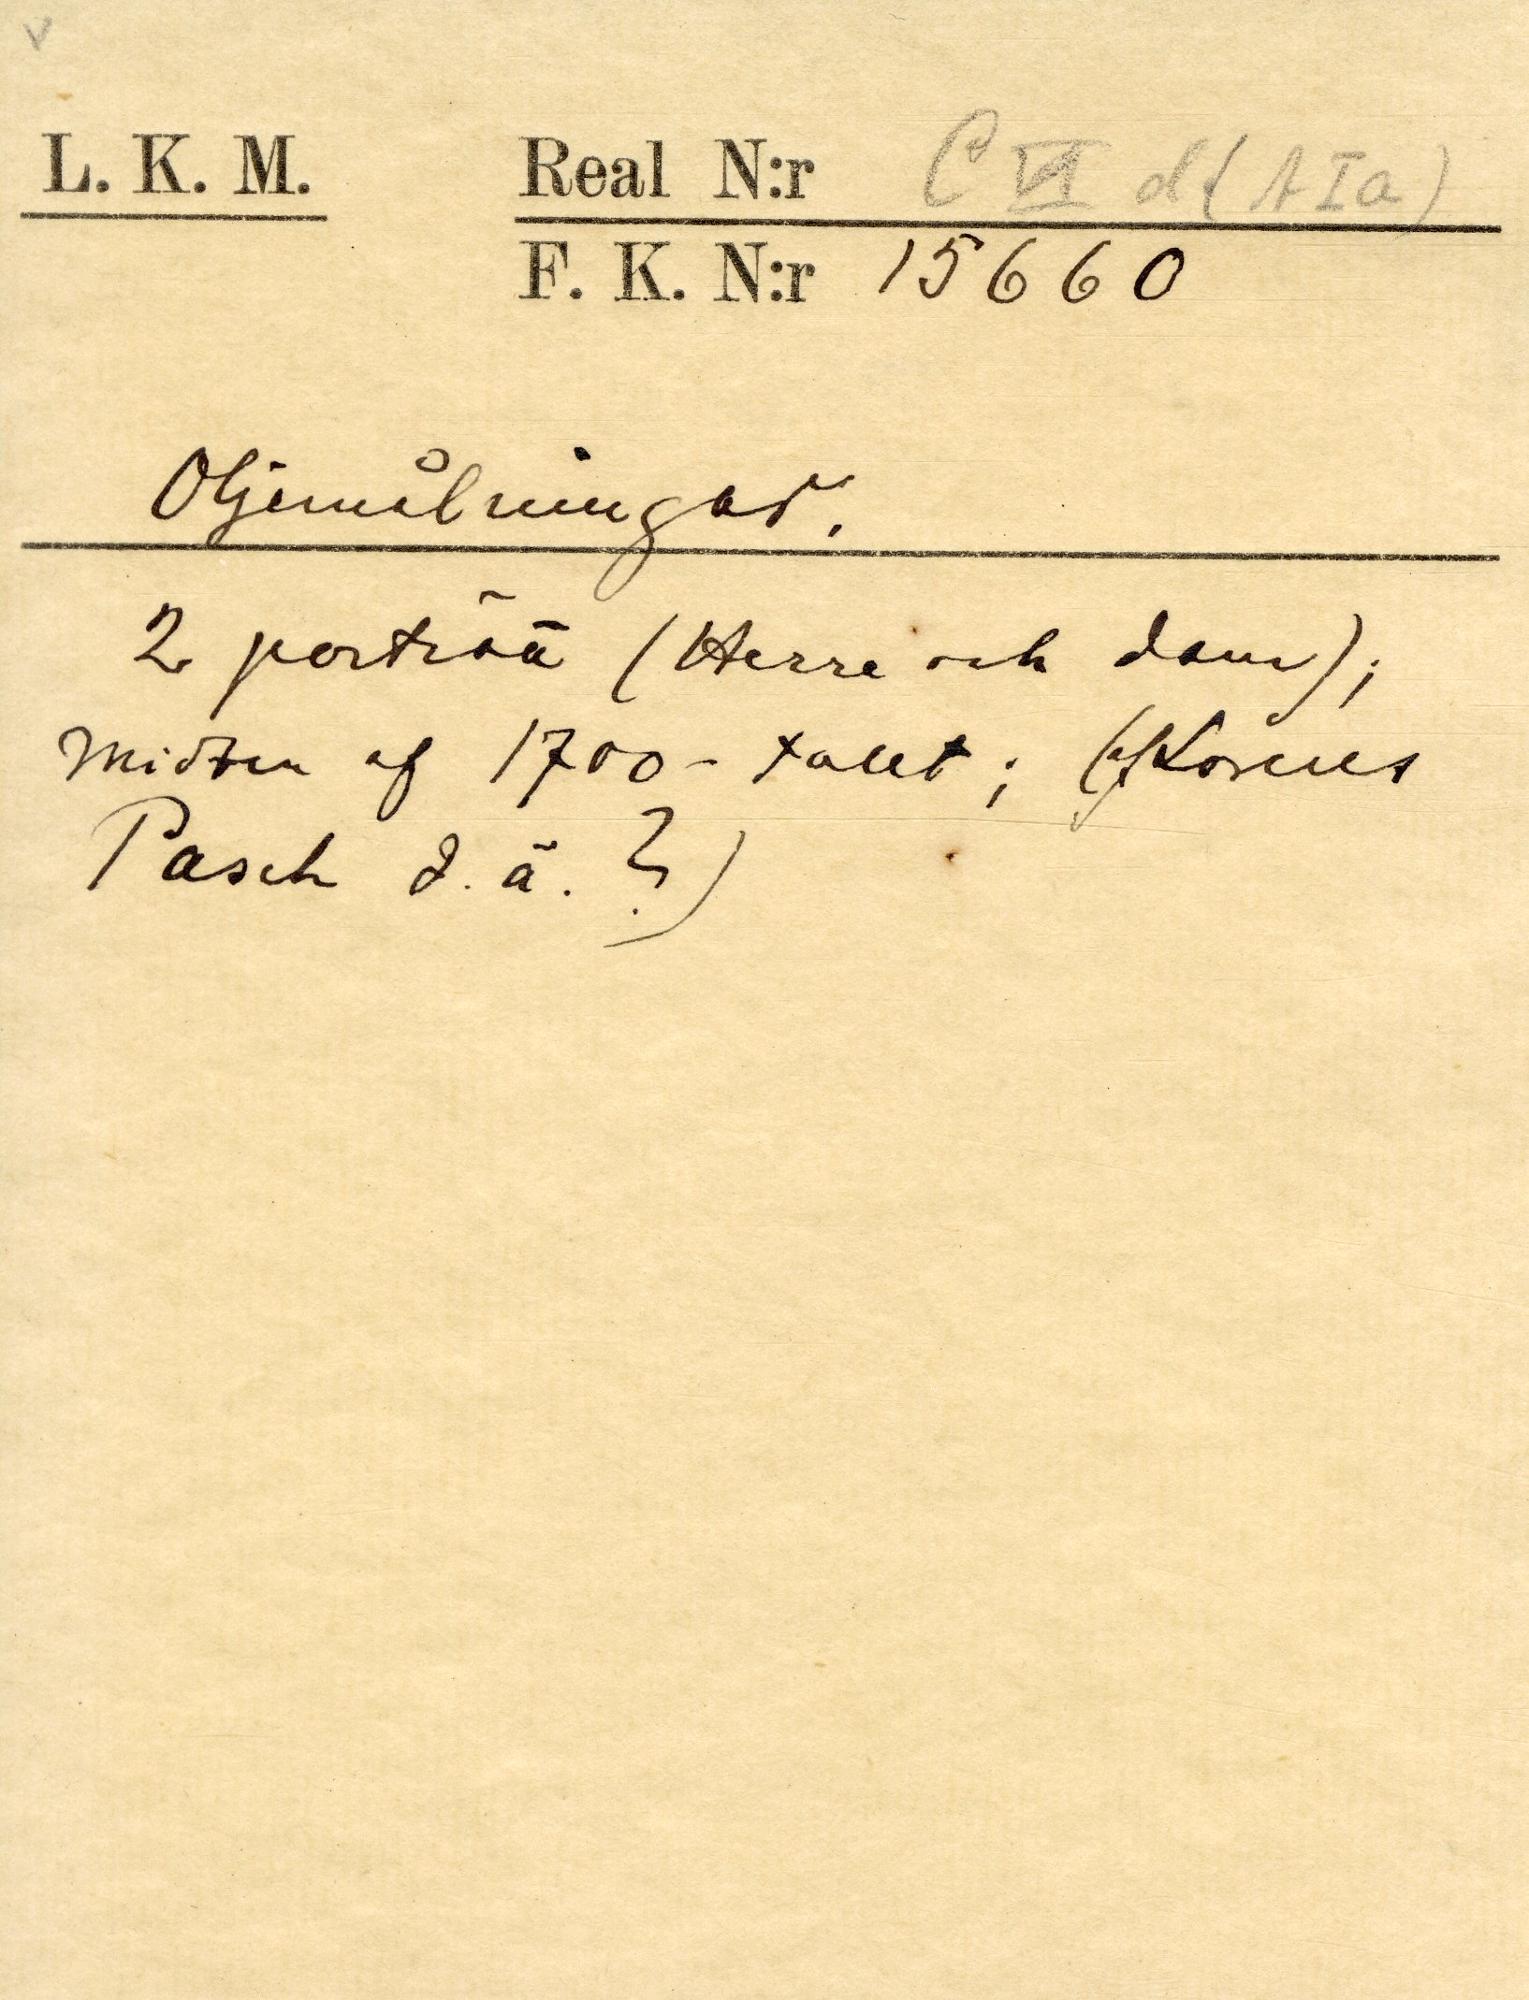 v
L. K. M.
Real N:r C VI d (A I a)
F. K. N:r 15660
Oljemålningar.
2 porträtt (Herre och dam);
midten af 1700-talet; (af Lorens
Pasch d. ä. ?)